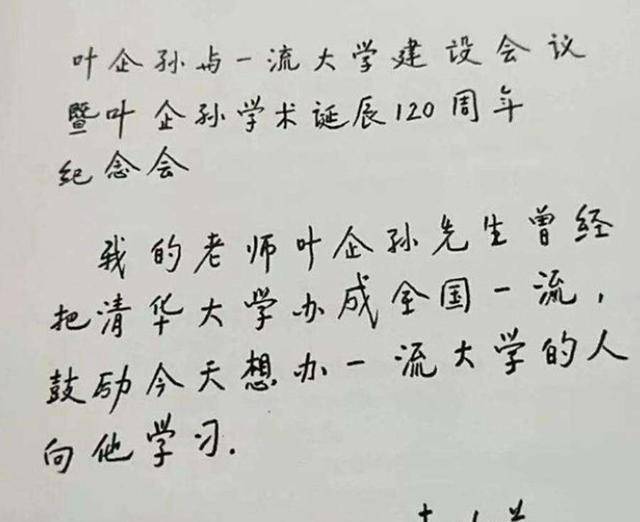 叶企孙与一流大学建设会议
暨叶企孙学术诞辰120周年
纪念会
我的老师叶企孙先生曾经
把清华大学办成全国一流,
鼓励今天想办一流大学的人
向他学习.